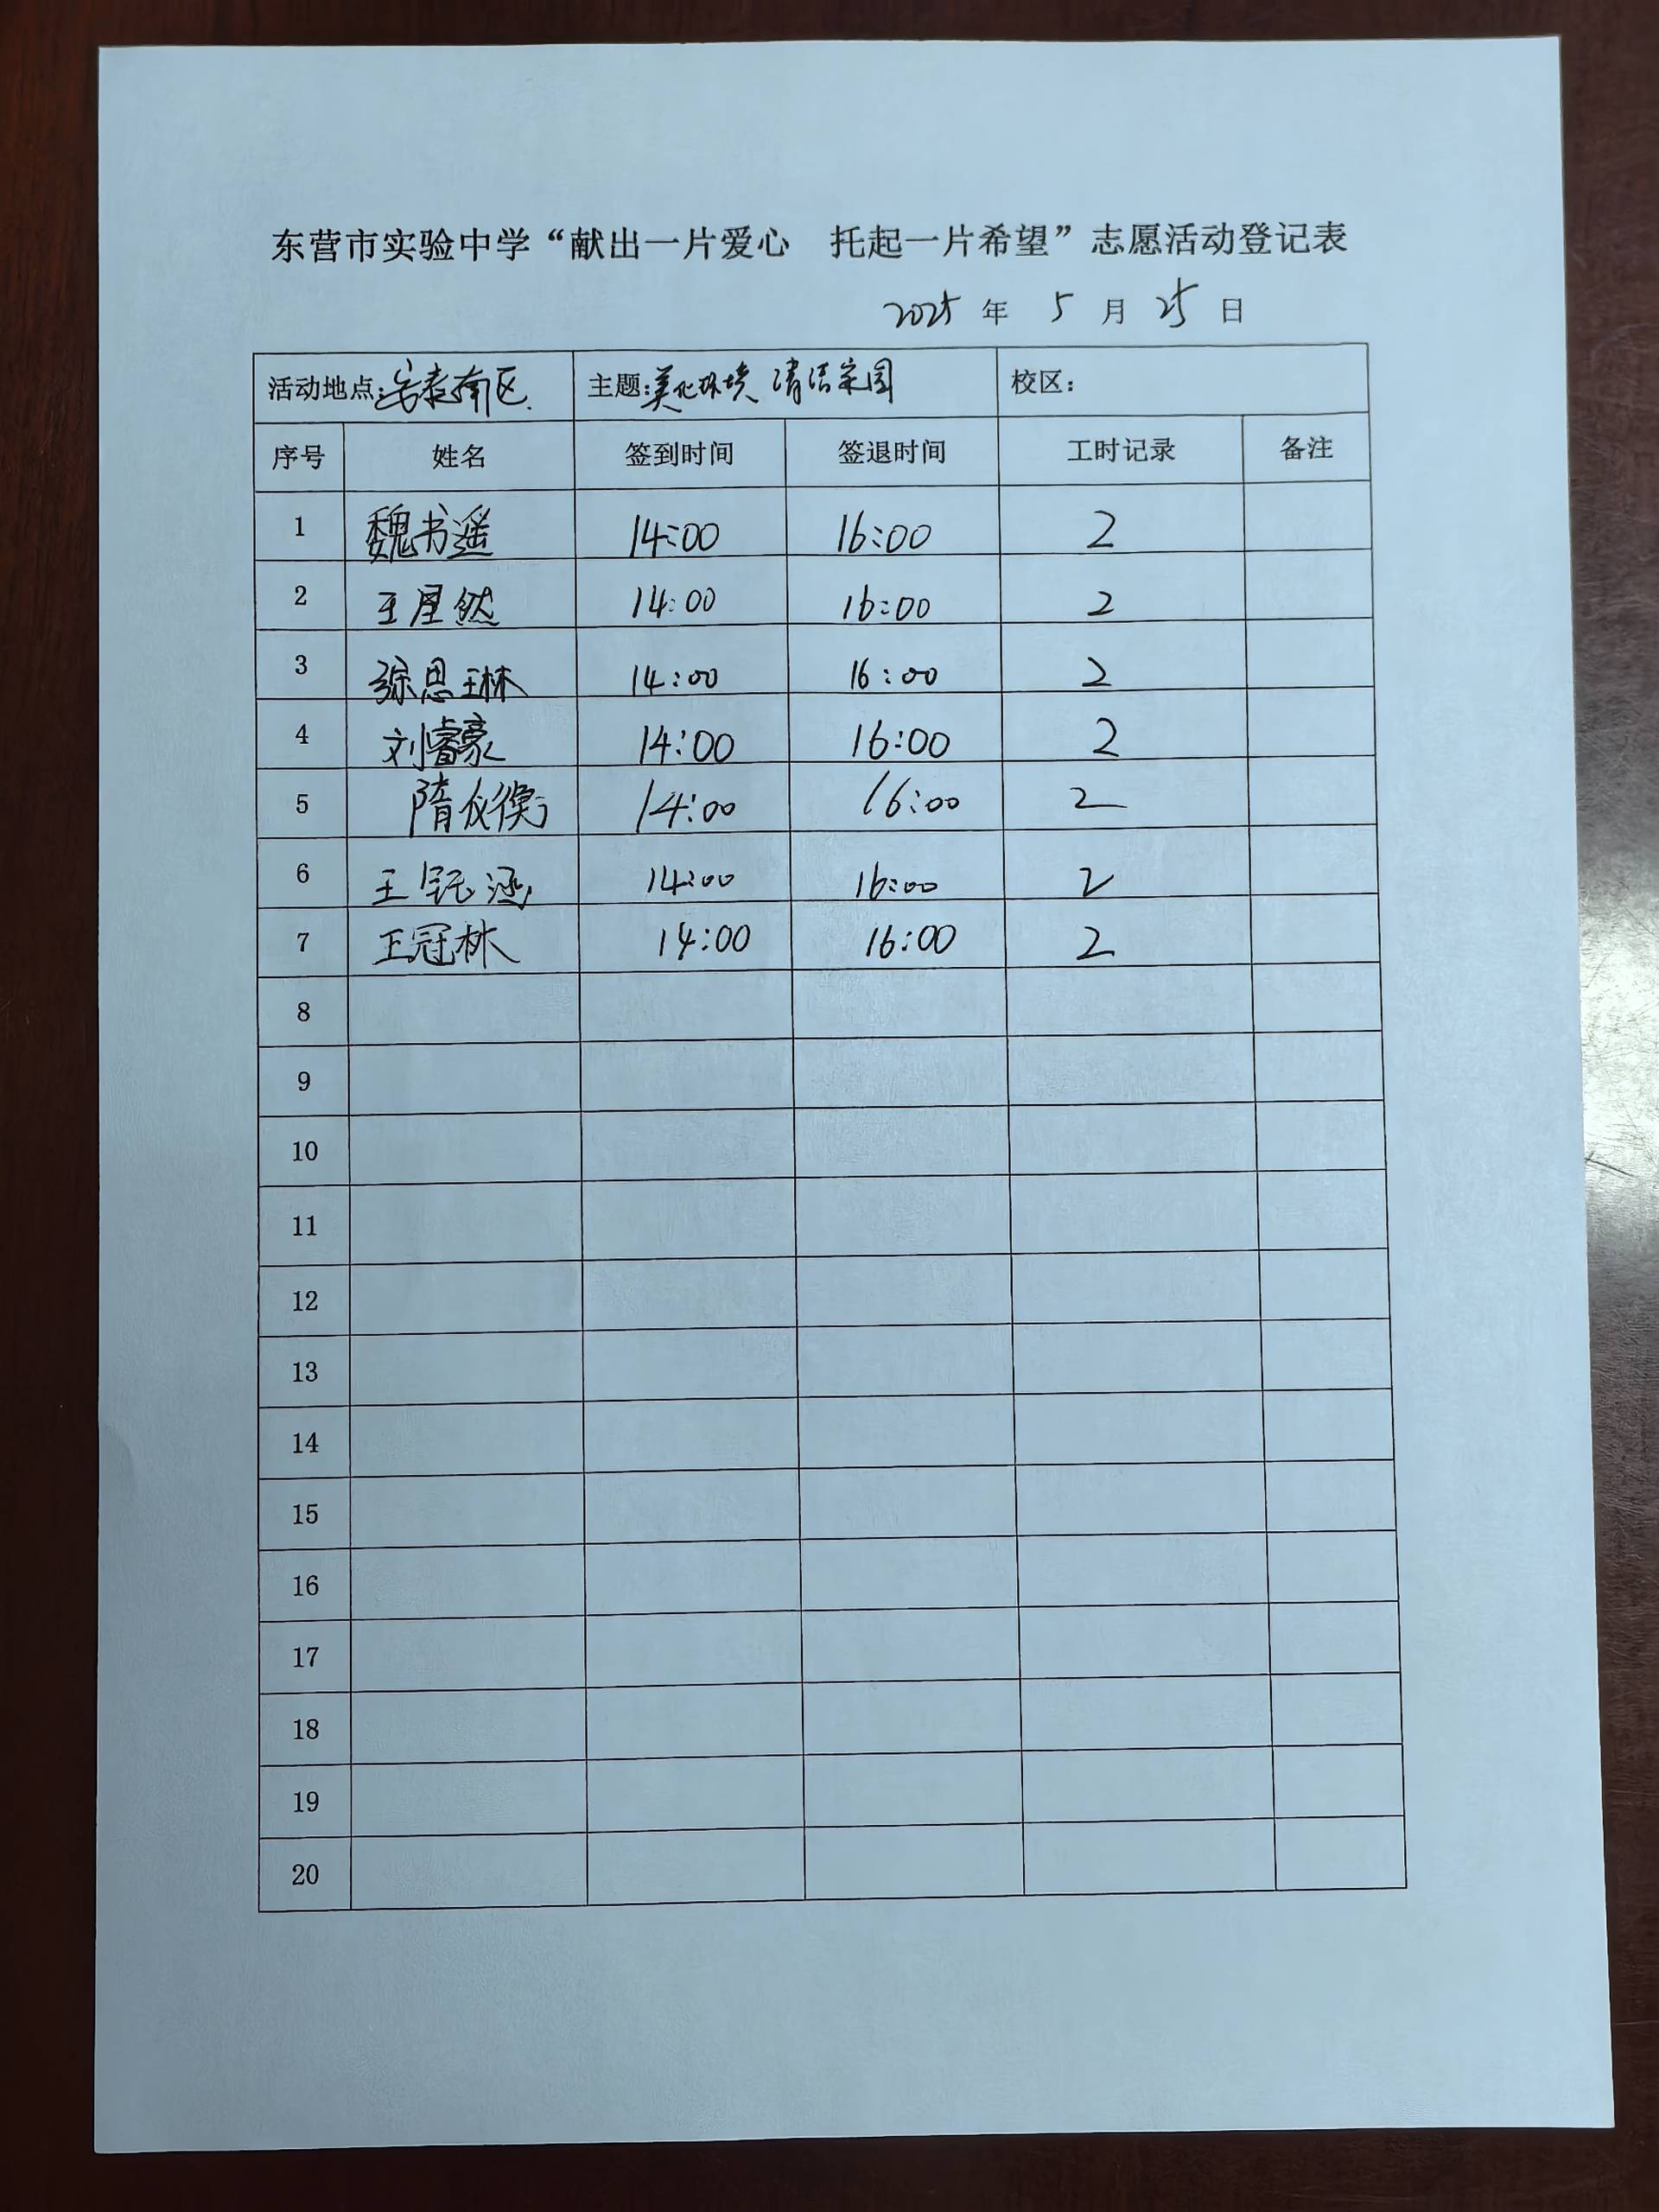 东营市实验中学“献出一片爱心 托起一片希望”志愿活动登记表
2025 年 5 月 25 日
活动地点:安泰南区. 主题:美化环境 清洁家园 校区:
序号 姓名 签到时间 签退时间 工时记录 备注
1 魏书遥 14:00 16:00 2
2 王星然 14:00 16:00 2
3 张思琳 14:00 16:00 2
4 刘睿豪 14:00 16:00 2
5 隋仪衡 14:00 16:00 2
6 王钰涵 14:00 16:00 2
7 王冠林 14:00 16:00 2
8
9
10
11
12
13
14
15
16
17
18
19
20